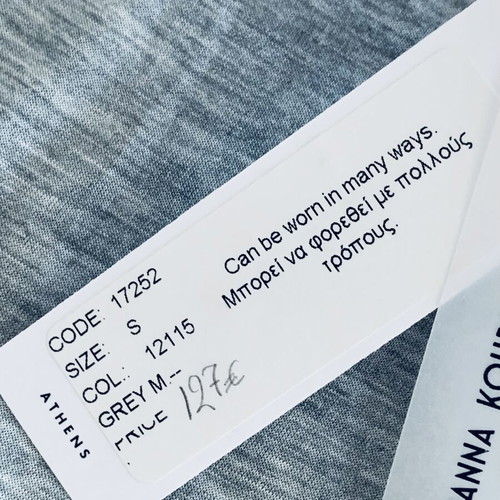 Can be worn in many ways.
Μπορεί να φορεθεί με πολλούς
τρόπους.
CODE: 17252
SIZE: S
COL.: 12115
GREY M.--
PRICE 127€
ATHENS
ANNA